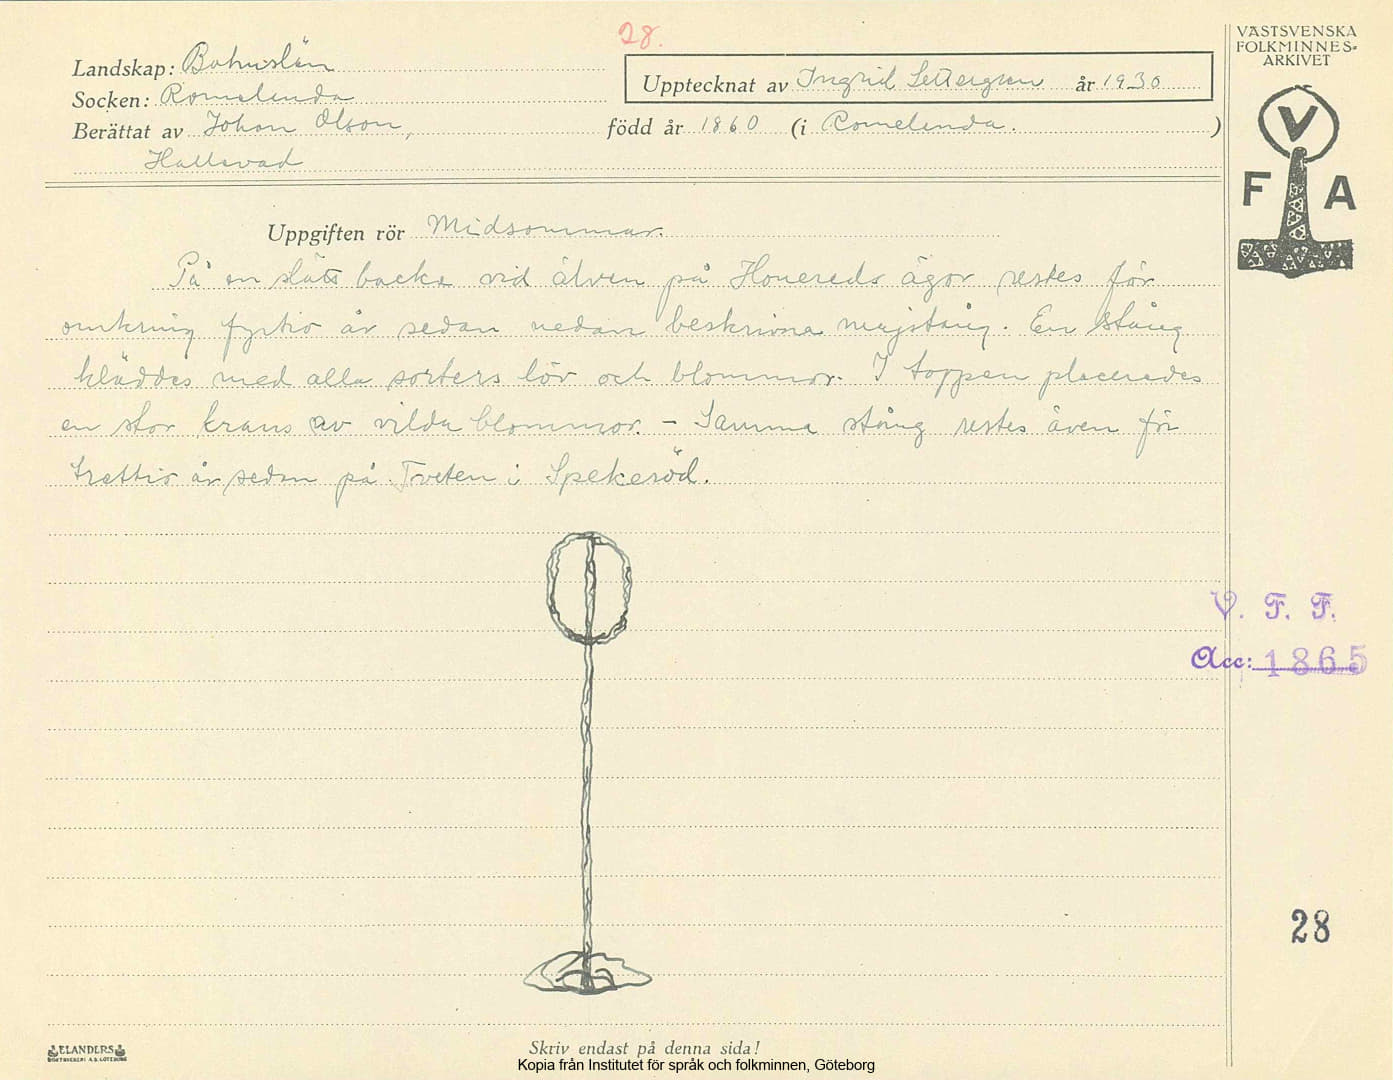 28.
Landskap: Bohuslän
Upptecknat av Ingrid Settergren år 1930
Socken: Romelanda
Berättat av Johan Olson, född år 1860 (i Romelanda.)
Hallsvad
Uppgiften rör Midsommar.
På en slätt backe vid älven på Honereds ägor restes för
omkring fyrtio år sedan nedan beskrivna majstång. En stång
kläddes med alla sorters löv och blommor. I toppen placerades
en stor krans av vilda blommor. - Samma stång restes även för
trettio år sedan på Tveten i Spekeröd.
VÄSTSVENSKA
FOLKMINNES-
ARKIVET
V
F A
V. F. F.
Acc: 1865
28
ELANDERS
Skriv endast på denna sida!
Kopia från Institutet för språk och folkminnen, Göteborg